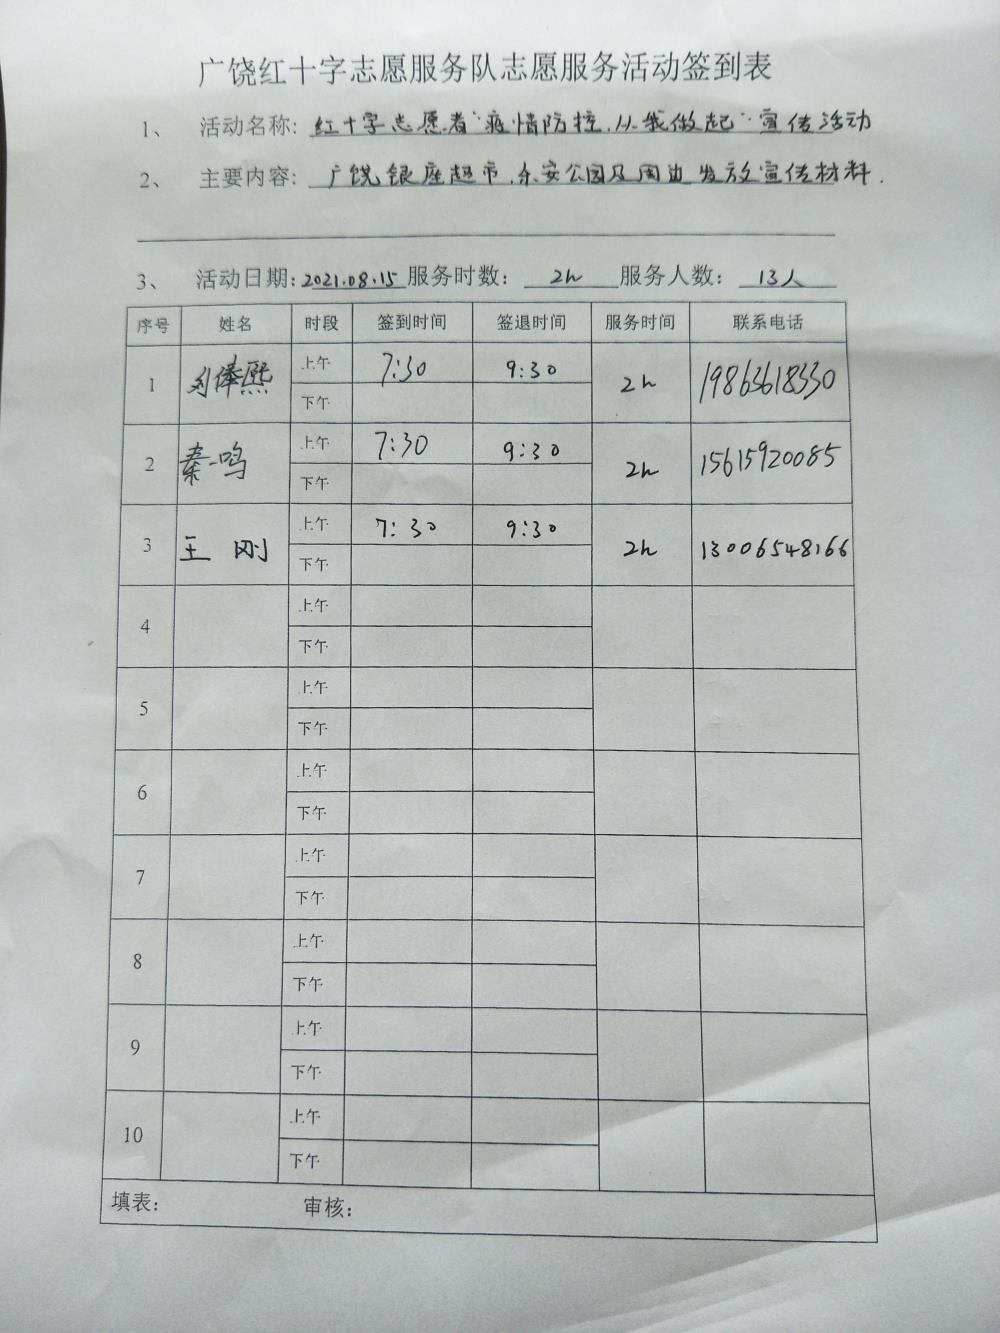 广饶红十字志愿服务队志愿服务活动签到表
1、 活动名称: 红十字志愿者"疫情防控,从我做起"宣传活动
2、 主要内容: 广饶银座超市,乐安公园及周边发放宣传材料.
3、 活动日期: 2021.08.15 服务时数: 2h 服务人数: 13人
序号 姓名 时段 签到时间 签退时间 服务时间 联系电话
1 刘俸熙 上午 7:30 9:30 2h 19863618330
下午
2 秦一鸣 上午 7:30 9:30 2h 15615920085
下午
3 王刚 上午 7:30 9:30 2h 13006548166
下午
4 上午
下午
5 上午
下午
6 上午
下午
7 上午
下午
8 上午
下午
9 上午
下午
10 上午
下午
填表: 审核: